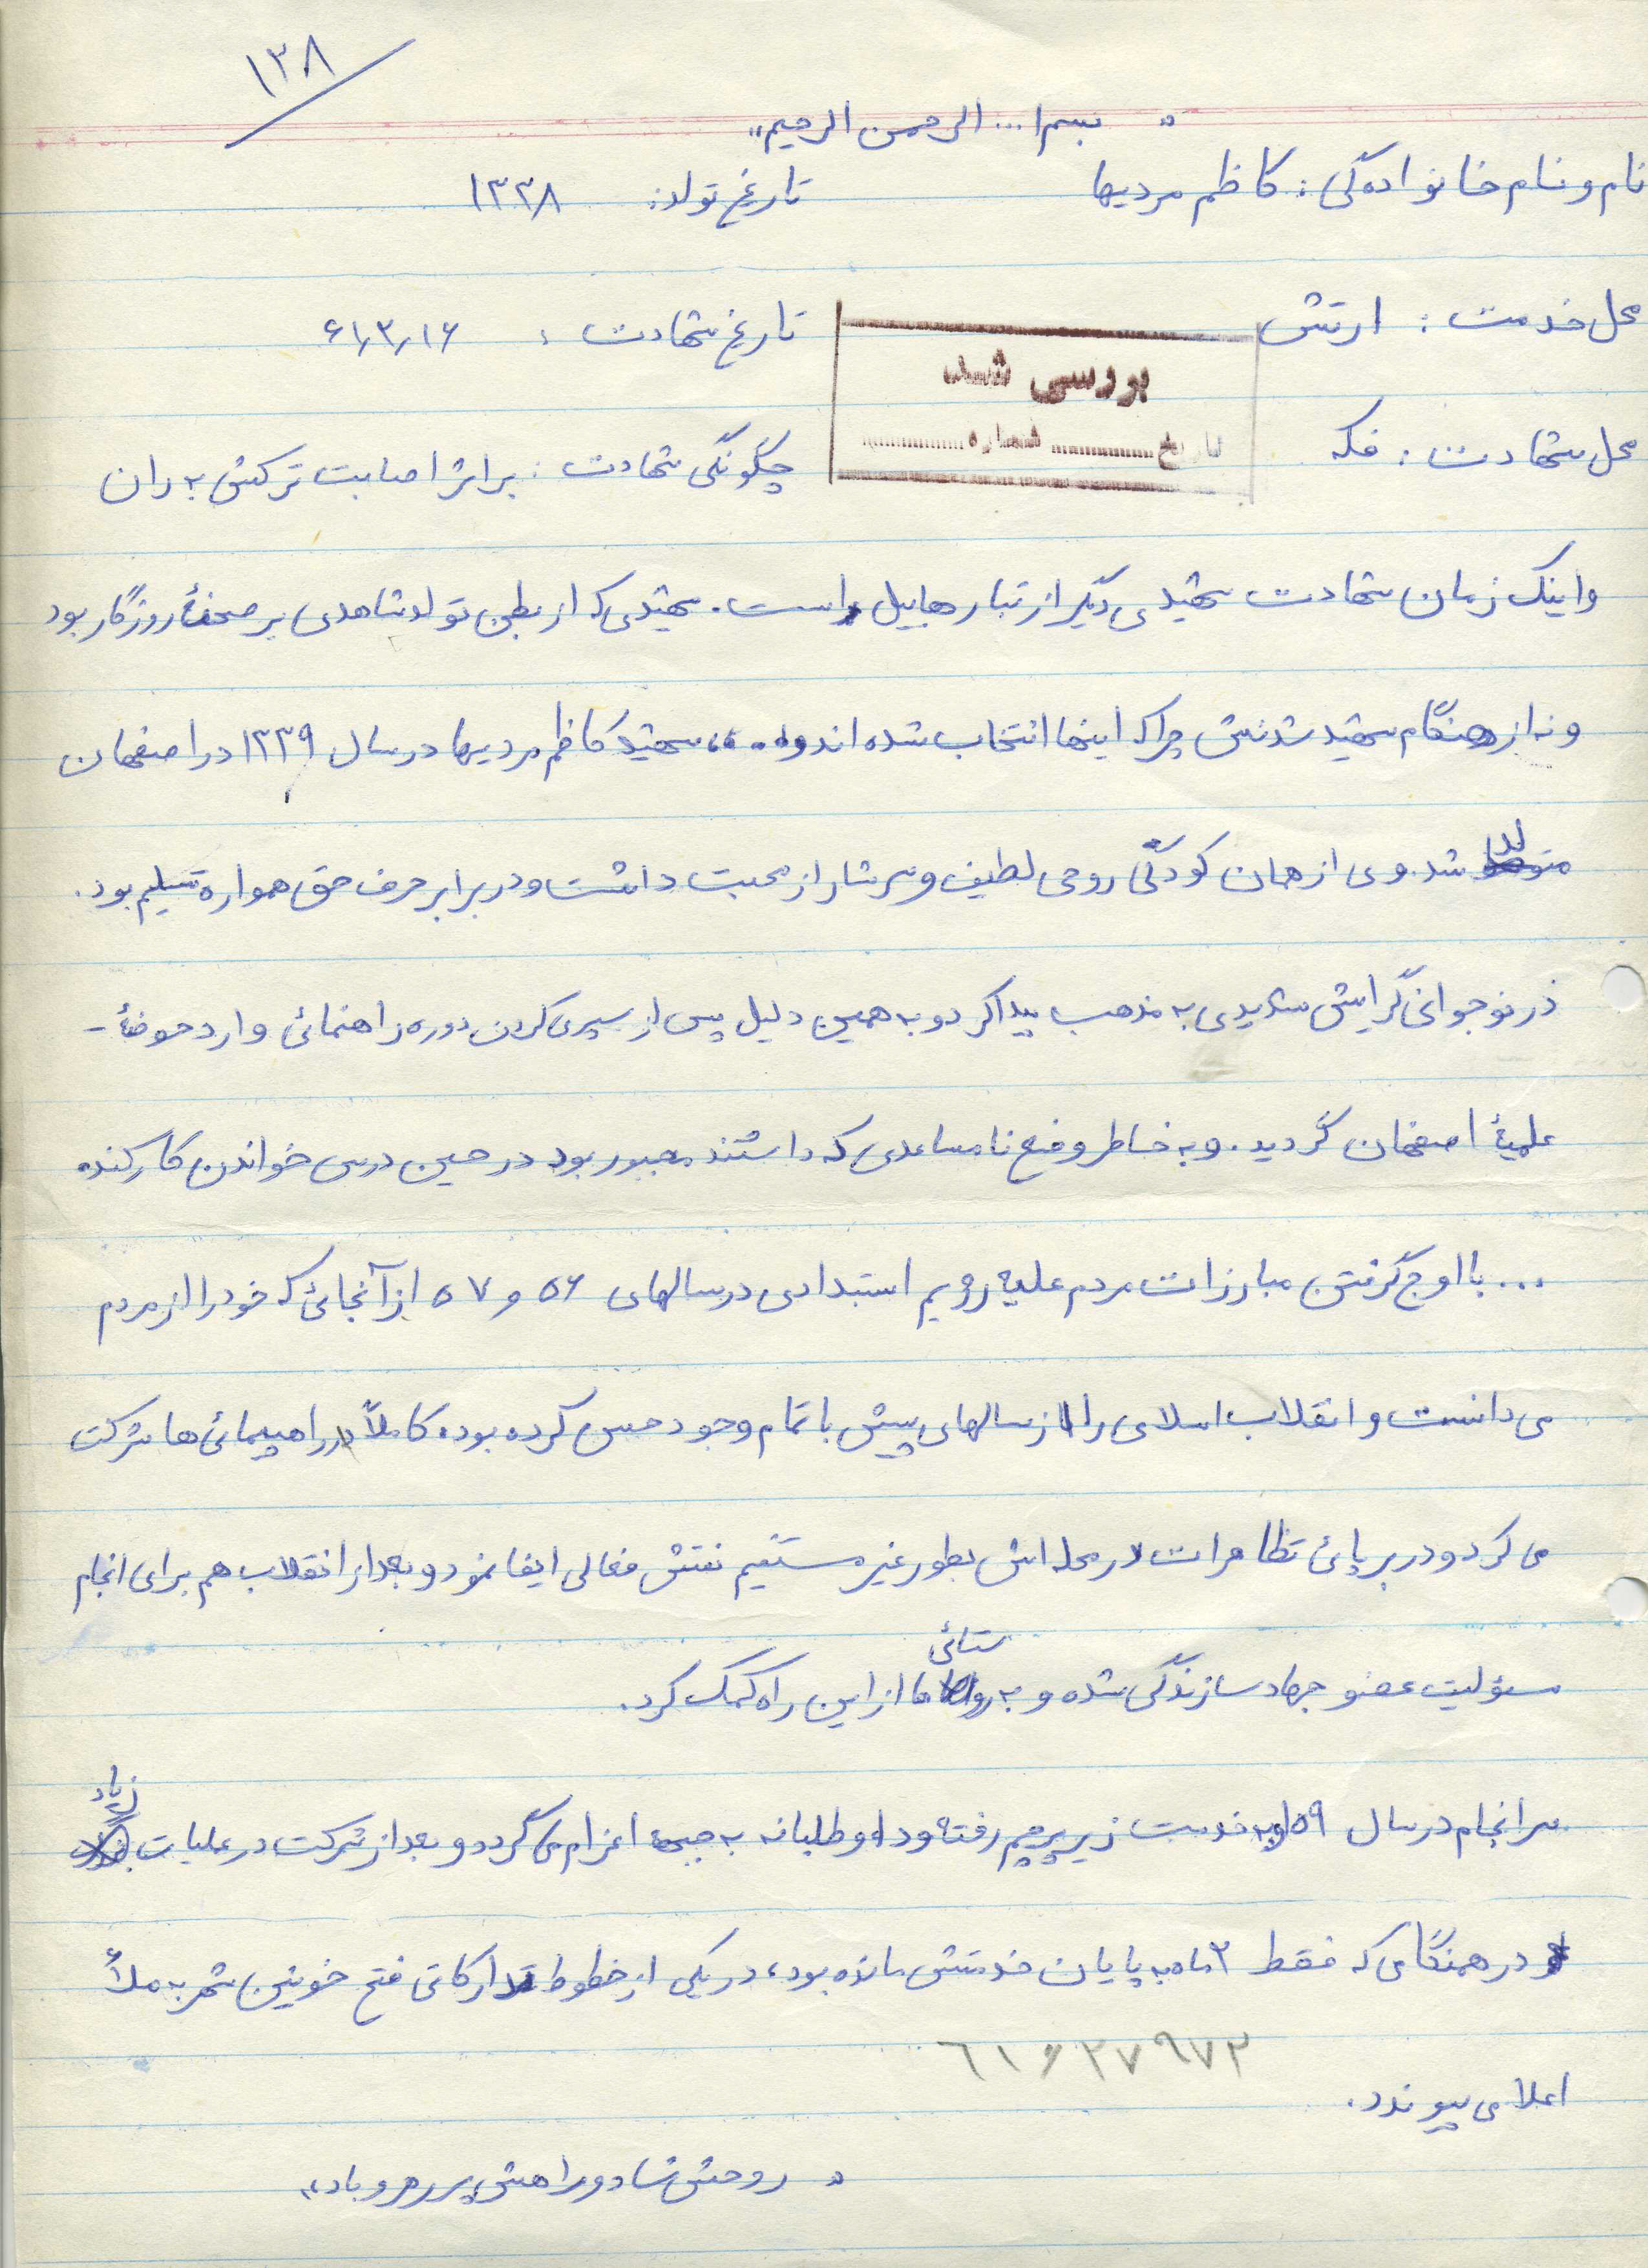 ۱۳۸
« بسم ا... الرحمن الرحیم »
نام و نام خانوادگی : کاظم مردیها تاریخ تولد : ۱۳۳۸
محل خدمت : ارتش تاریخ شهادت : ۶۱٫۳٫۱۶
بررسی شد
تاریخ ............ شماره ............
محل شهادت : فکه چگونگی شهادت : بر اثر اصابت ترکش به ران
و اینک زمان شهادت شهیدی دیگر از تبار هابیل است . شهیدی که از بطن تولد شاهدی بر صحنهٔ روزگار بود
و نه از هنگام شهید شدنش چرا که اینها انتخاب شده اند و ... شهید کاظم مردیها در سال ۱۳۳۹ در اصفهان
متولد شد . وی از همان کودکی روحی لطیف و سرشار از محبت داشت و در برابر حرف حق همواره تسلیم بود .
در نوجوانی گرایش شدیدی به مذهب پیدا کرد و به همین دلیل پس از سپری کردن دوره راهنمائی وارد حوضهٔ -
علمیهٔ اصفهان گردید . و به خاطر وضع نامساعدی که داشتند مجبور بود در حین درس خواندن کار کنده
... با اوج گرفتن مبارزات مردم علیه رژیم استبدادی در سالهای ۵۶ و ۵۷ از آنجائی که خود را از مردم
می دانست و انقلاب اسلامی را از سالهای پیش با تمام وجود حس کرده بود ، کاملاً در راهپیمائی ها شرکت
می کرد و در برپائی تظاهرات در محله اش بطور غیر مستقیم نقش فعالی ایفا نمود و بعد از انقلاب هم برای انجام
مسئولیت عضو جهاد سازندگی شده و به روستائی ها از این راه کمک کرد .
سرانجام در سال ۵۹ به خدمت زیر پرچم رفته و داوطلبانه به جبهه اعزام می گردد و بعد از شرکت در عملیات زیاد
در همنگامی که فقط ۳ ماه به پایان خدمتش مانده بود ، در یکی از خطوط تدارکاتی فتح خونین شهر به ملأ
۶۱۶۲۷۹۷۳
اعلا می پیوندد .
« روحش شاد و راهش پر رهرو باد »